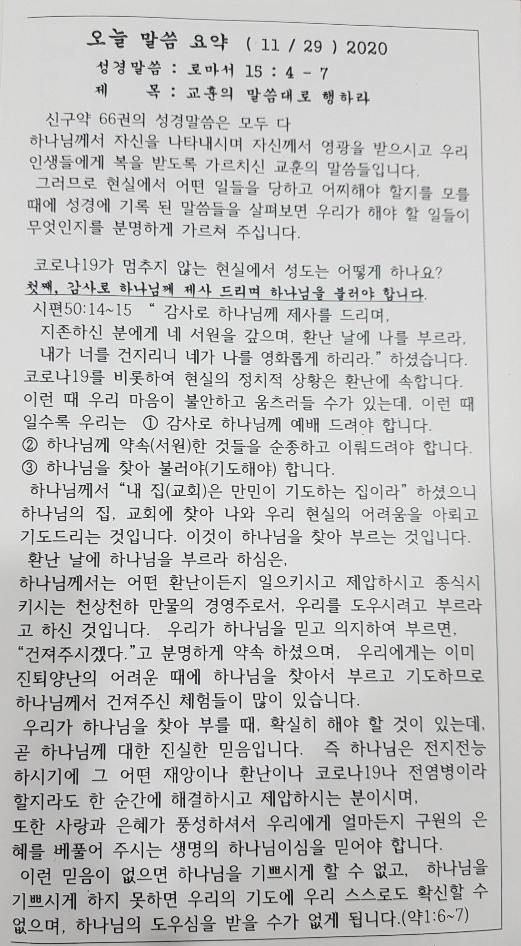 오늘 말씀 요약 ( 11 / 29 ) 2020
성경말씀 : 로마서 15 : 4 - 7
제 목 : 교훈의 말씀대로 행하라
신구약 66권의 성경말씀은 모두 다
하나님께서 자신을 나타내시며 자신께서 영광을 받으시고 우리
인생들에게 복을 받도록 가르치신 교훈의 말씀들입니다.
그러므로 현실에서 어떤 일들을 당하고 어찌해야 할지를 모를
때에 성경에 기록 된 말씀들을 살펴보면 우리가 해야 할 일들이
무엇인지를 분명하게 가르쳐 주십니다.
코로나19가 멈추지 않는 현실에서 성도는 어떻게 하나요?
첫째, 감사로 하나님께 제사 드리며 하나님을 불러야 합니다.
시편50:14~15 “ 감사로 하나님께 제사를 드리며,
지존하신 분에게 네 서원을 갚으며, 환난 날에 나를 부르라,
내가 너를 건지리니 네가 나를 영화롭게 하리라.” 하셨습니다.
코로나19를 비롯하여 현실의 정치적 상황은 환난에 속합니다.
이런 때 우리 마음이 불안하고 움츠러들 수가 있는데, 이런 때
일수록 우리는 ① 감사로 하나님께 예배 드려야 합니다.
② 하나님께 약속(서원)한 것들을 순종하고 이뤄드려야 합니다.
③ 하나님을 찾아 불러야(기도해야) 합니다.
하나님께서 “내 집(교회)은 만민이 기도하는 집이라” 하셨으니
하나님의 집, 교회에 찾아 나와 우리 현실의 어려움을 아뢰고
기도드리는 것입니다. 이것이 하나님을 찾아 부르는 것입니다.
환난 날에 하나님을 부르라 하심은,
하나님께서는 어떤 환난이든지 일으키시고 제압하시고 종식시
키시는 천상천하 만물의 경영주로서, 우리를 도우시려고 부르라
고 하신 것입니다. 우리가 하나님을 믿고 의지하여 부르면,
“건져주시겠다.”고 분명하게 약속 하셨으며, 우리에게는 이미
진퇴양난의 어려운 때에 하나님을 찾아서 부르고 기도하므로
하나님께서 건져주신 체험들이 많이 있습니다.
우리가 하나님을 찾아 부를 때, 확실히 해야 할 것이 있는데,
곧 하나님께 대한 진실한 믿음입니다. 즉 하나님은 전지전능
하시기에 그 어떤 재앙이나 환난이나 코로나19나 전염병이라
할지라도 한 순간에 해결하시고 제압하시는 분이시며,
또한 사랑과 은혜가 풍성하셔서 우리에게 얼마든지 구원의 은
혜를 베풀어 주시는 생명의 하나님이심을 믿어야 합니다.
이런 믿음이 없으면 하나님을 기쁘시게 할 수 없고, 하나님을
기쁘시게 하지 못하면 우리의 기도에 우리 스스로도 확신할 수
없으며, 하나님의 도우심을 받을 수가 없게 됩니다.(약1:6~7)